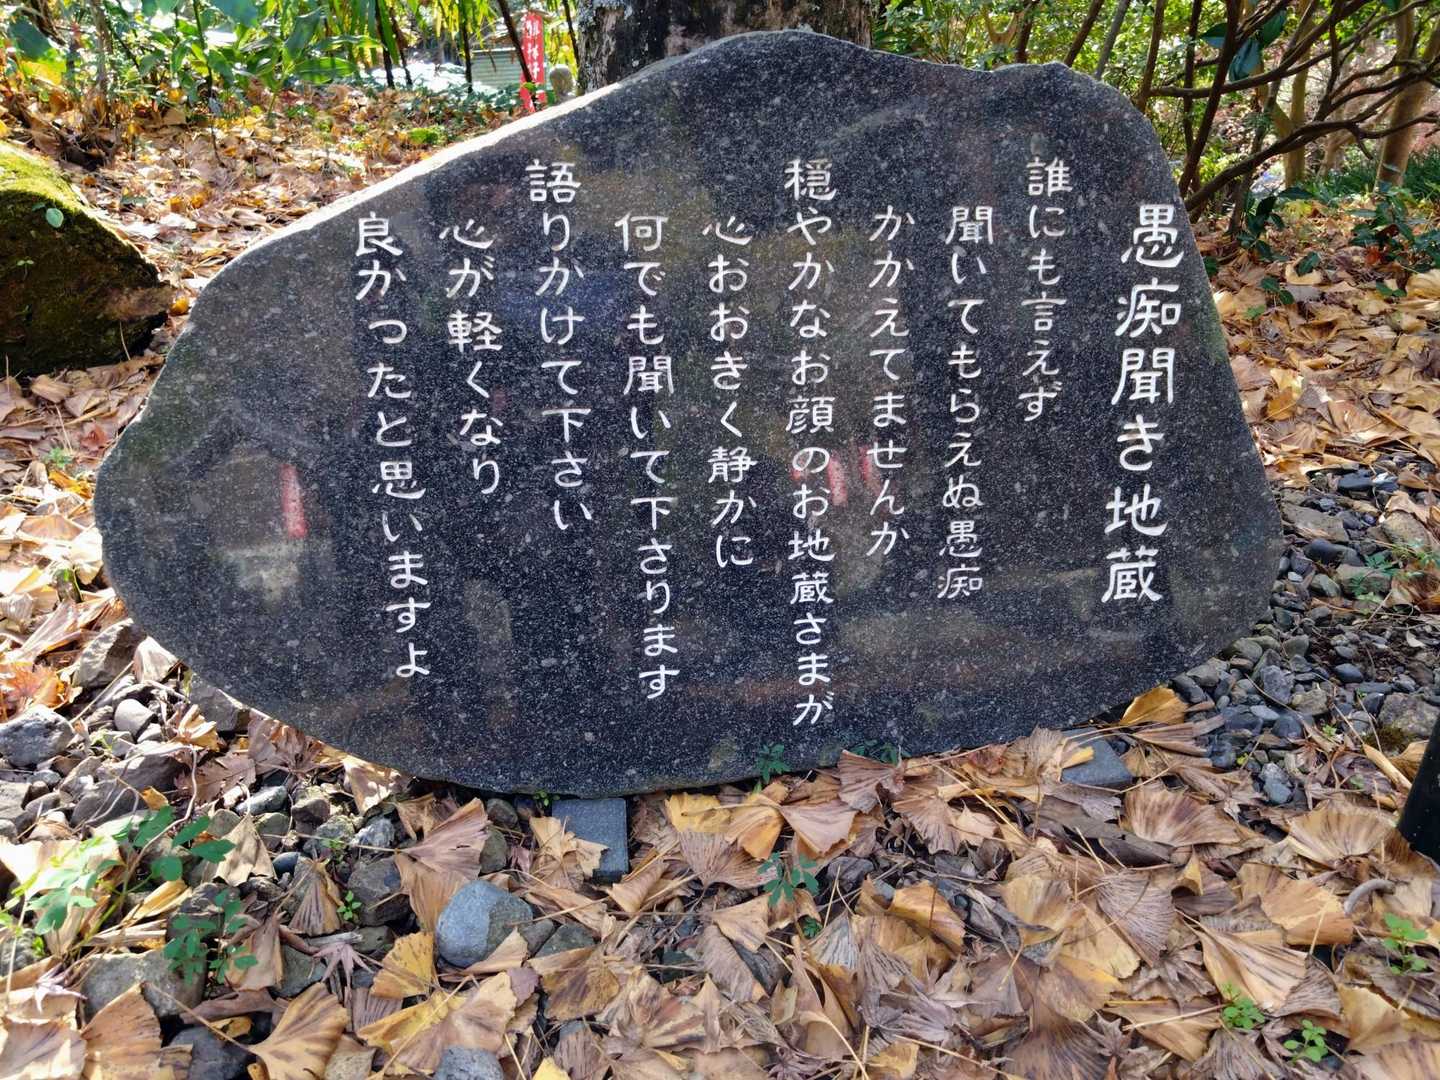 愚痴聞き地蔵
誰にも言えず
聞いてもらえぬ愚痴
かかえてませんか
穏やかなお顔のお地蔵さまが
心おおきく静かに
何でも聞いて下さります
語りかけて下さい
心が軽くなり
良かったと思いますよ